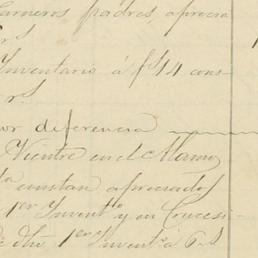 Carneros padres, aprecia
rs
Inventario á ps 14 cons-
rs.
or diferencia
Vientre en el Alamo,
ta constan apreciados
1er Inventº y en Sucesi-
de dho 1er Inventº á 6 rs